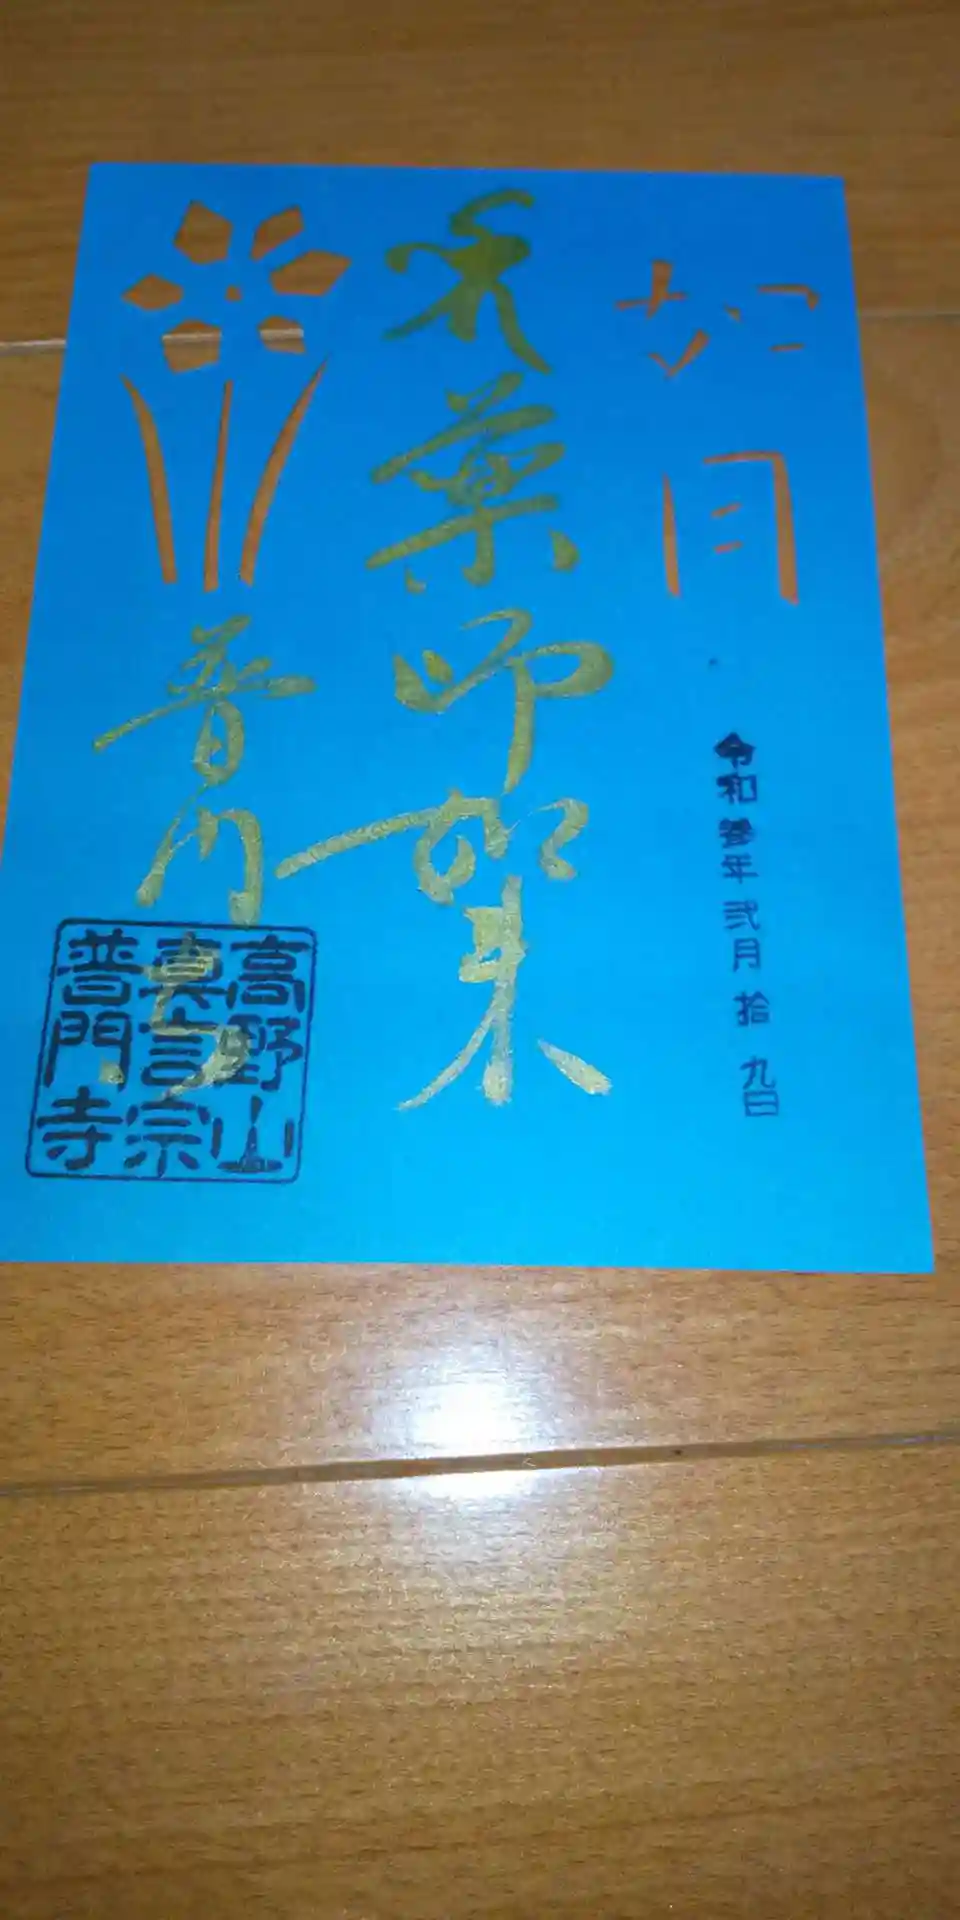 如月
令和参年弐月拾九日
薬師如来
普門寺
高野山
真言宗
普門寺